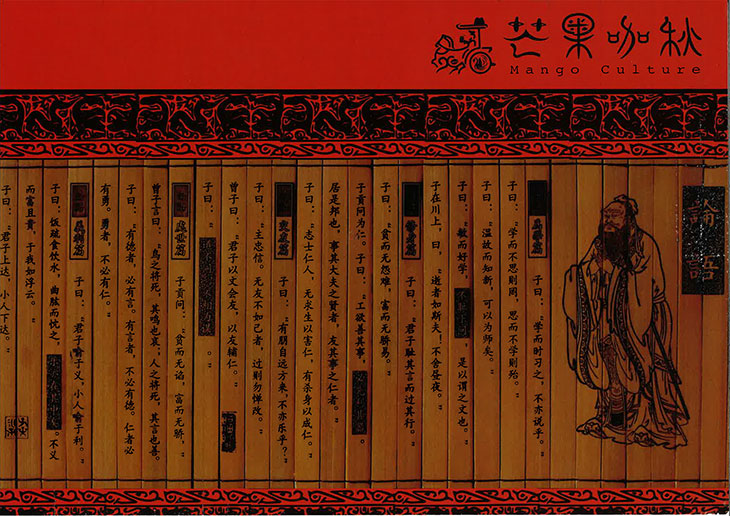 芒果咖秋
Mango Culture
論語
子曰：“学而时习之，不亦说乎。”
子曰：“学而不思则罔，思而不学则殆。”
子曰：“温故而知新，可以为师矣。”
子曰：“敏而好学，是以谓之文也。”
子在川上，曰，“逝者如斯夫！不舍昼夜。”
子曰：“君子耻其言而过其行。”
子曰：“贫而无怨难，富而无骄易。”
子贡问为仁。子曰：“工欲善其事，。
居是邦也，事其大夫之贤者，友其事之仁者。
子曰：“志士仁人，无求生以害仁，有杀身以成仁。”
子曰：“有朋自远方来，不亦乐乎？”
子曰：“主忠信。无友不如己者，过则勿惮改。”
曾子曰：“君子以文会友，以友辅仁。”
子曰：“。”
子贡问：“贫而无谄，富而无骄，
曾子言曰：“鸟之将死，其鸣也哀；人之将死，其言也善。
子曰：“有德者，必有言。有言者，不必有德。仁者必
有勇。勇者，不必有仁。”
子曰：“君子喻于义，小人喻于利。”
子曰：“饭疏食饮水，曲肱而忱之，。不义
而富且贵，于我如浮云。”
子曰：“君子上达，小人下达。”